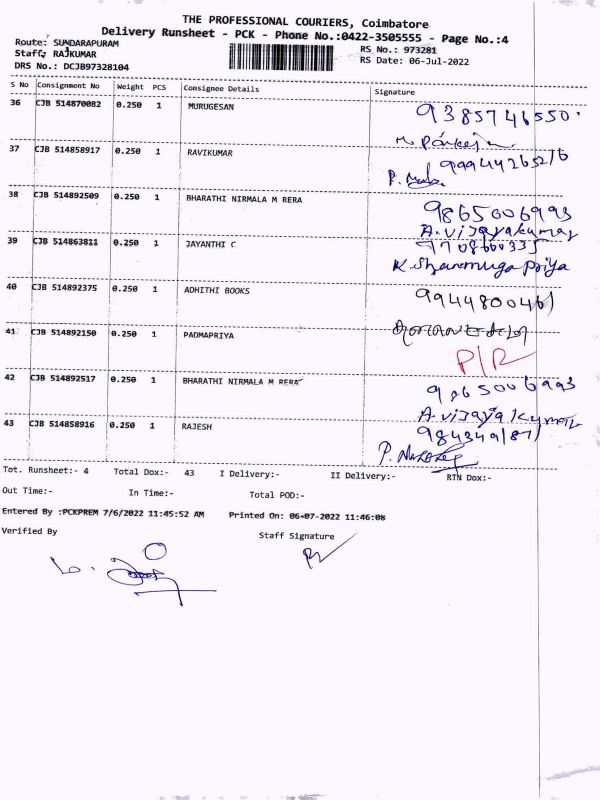 THE PROFESSIONAL COURIERS, Coimbatore
Delivery Runsheet - PCK - Phone No.:0422-3505555 - Page No.:4
Route: SUNDARAPURAM
Staff: RAJKUMAR
DRS No.: DCJB97328104
RS No.: 973281
RS Date: 06-Jul-2022
S No Consignment No Weight PCS Consignee Details Signature
36 CJB 514870082 0.250 1 MURUGESAN 9385746550
37 CJB 514858917 0.250 1 RAVIKUMAR 9994426526
P.
38 CJB 514892509 0.250 1 BHARATHI NIRMALA M RERA 9865006993
A.vijayakumar
39 CJB 514863811 0.250 1 JAYANTHI C
K.Shanmuga priya
40 CJB 514892375 0.250 1 ADHITHI BOOKS 9944800461
41 CJB 514892150 0.250 1 PADMAPRIYA
P/R
42 CJB 514892517 0.250 1 BHARATHI NIRMALA M RERA 9865006993
A.vijaya kumar
43 CJB 514858916 0.250 1 RAJESH
P.
Tot. Runsheet:- 4 Total Dox:- 43 I Delivery:- II Delivery:- RTN Dox:-
Out Time:- In Time:- Total POD:-
Entered By :PCKPREM 7/6/2022 11:45:52 AM Printed On: 06-07-2022 11:46:08
Verified By Staff Signature